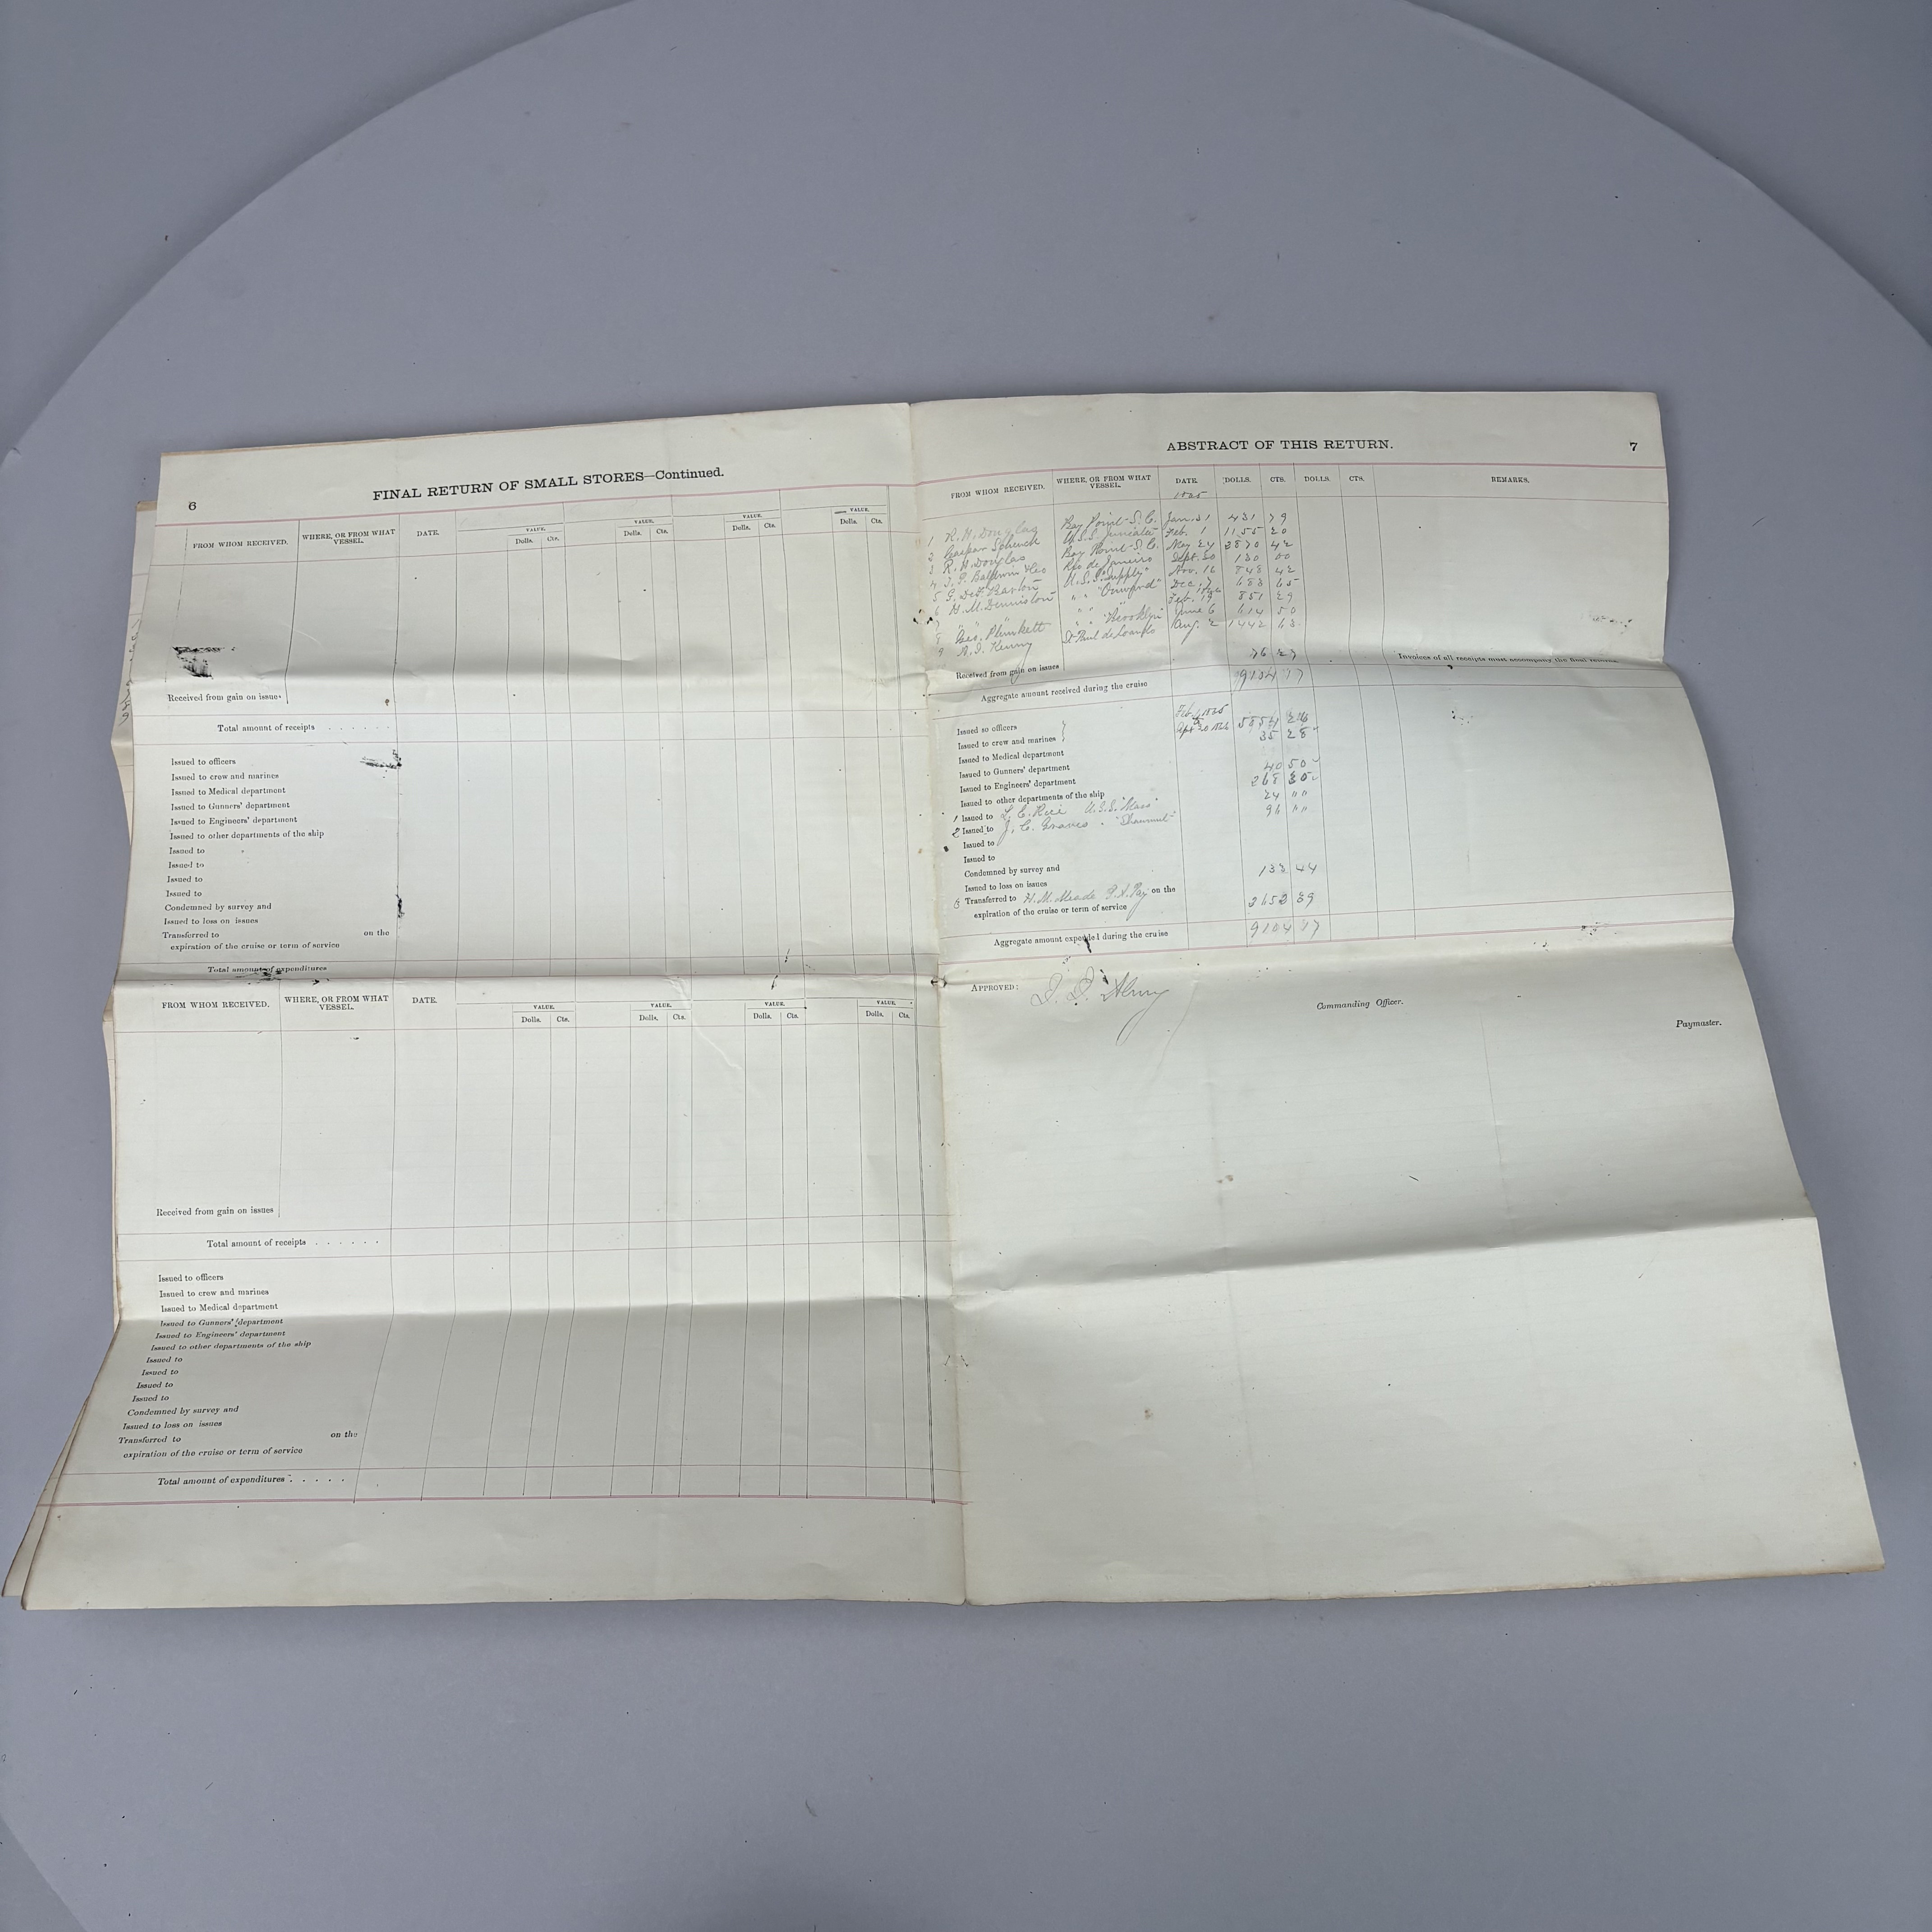 6
FINAL RETURN OF SMALL STORES—Continued.
FROM WHOM RECEIVED. WHERE, OR FROM WHAT VESSEL. DATE. VALUE. VALUE. VALUE. VALUE.
Dolls. Cts. Dolls. Cts. Dolls. Cts. Dolls. Cts.
Received from gain on issues
Total amount of receipts . . . . . .
Issued to officers
Issued to crew and marines
Issued to Medical department
Issued to Gunners' department
Issued to Engineers' department
Issued to other departments of the ship
Issued to
Issued to
Issued to
Issued to
Condemned by survey and
Issued to loss on issues
Transferred to on the
expiration of the cruise or term of service
Total amount of expenditures
FROM WHOM RECEIVED. WHERE, OR FROM WHAT VESSEL. DATE. VALUE. VALUE. VALUE. VALUE.
Dolls. Cts. Dolls. Cts. Dolls. Cts. Dolls. Cts.
Received from gain on issues
Total amount of receipts . . . . . .
Issued to officers
Issued to crew and marines
Issued to Medical department
Issued to Gunners' department
Issued to Engineers' department
Issued to other departments of the ship
Issued to
Issued to
Issued to
Issued to
Condemned by survey and
Issued to loss on issues
Transferred to on the
expiration of the cruise or term of service
Total amount of expenditures . . . . .
ABSTRACT OF THIS RETURN. 7
FROM WHOM RECEIVED. WHERE, OR FROM WHAT VESSEL. DATE. DOLLS. CTS. DOLLS. CTS. REMARKS.
1865
1 R. H. Douglas Bay Point S. C. Jan. 31 431 79
2 Caspar Schenck U.S.S. Juniata Feb. 1 1155 20
3 R. H. Douglas Bay Point S. C. May 24 2870 42
4 Baldwin &Co Rio de Janeiro Sept. 30 130 00
5 G. DeF. Barton U.S.S. "Supply" Nov. 16 848 42
6 H. M. Denniston " " "Onward" Dec. 7 683 65
7 " " " " Feb. 19 851 29
8 Geo. Plunkett " " "Brooklyn" June 6 614 50
9 A. J. Kenny St Paul de Loando Aug. 2 1442 63
Received from gain on issues 76 27
Invoices of all receipts must accompany the final returns.
Aggregate amount received during the cruise 9104 77
Issued to officers Feb. 1, 1865
Issued to crew and marines 26
Issued to Medical department 35 28
Issued to Gunners' department
Issued to Engineers' department 40 50
Issued to other departments of the ship 268
1 Issued to L. C. Rice U.S.S. "Mass" 24 " "
2 Issued to J. C. Graves " "Shawmut" 96 " "
Issued to
Issued to
Condemned by survey and
Issued to loss on issues 133 44
Transferred to H. M. Meade P. A. Pay on the
expiration of the cruise or term of service 2652 39
Aggregate amount expended during the cruise 9104 77
APPROVED:
Commanding Officer.
Paymaster.